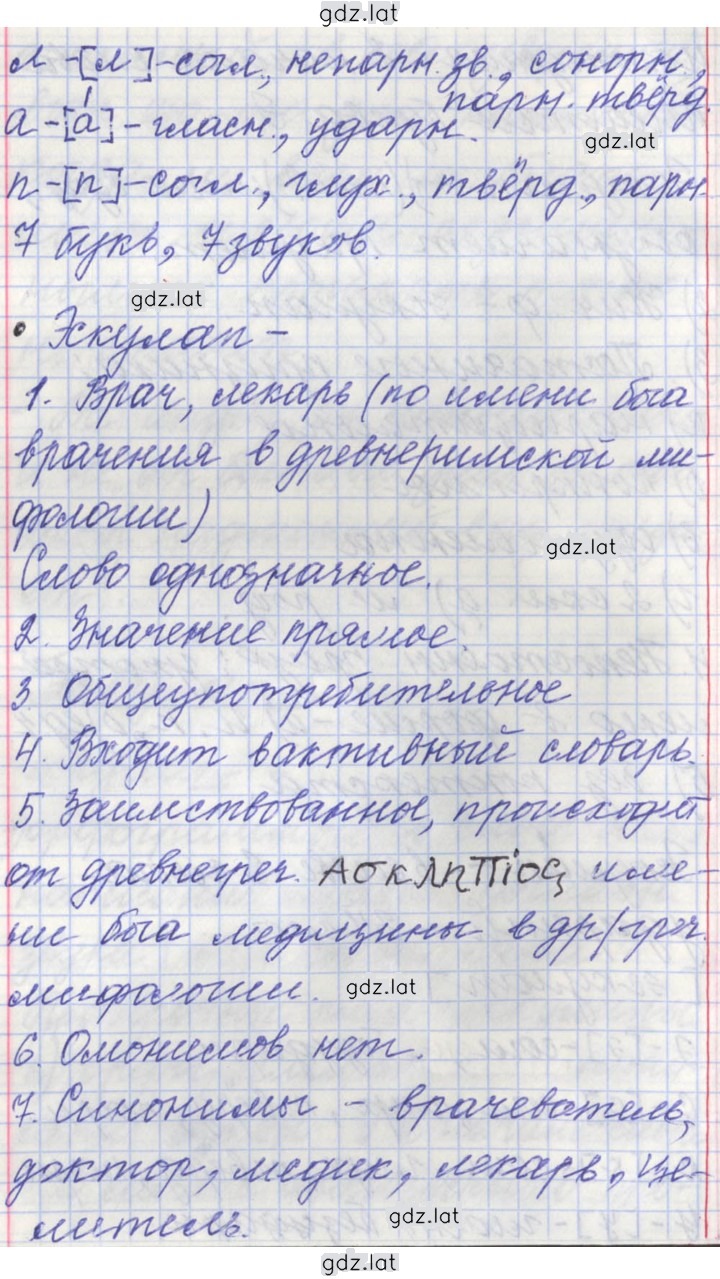 gdz.lat
л-[л]-согл., непарн. зв., сонорн.,
парн. твёрд.
а-[а́]-гласн., ударн.
gdz.lat
п-[п]-согл., глух., твёрд., парн.
7 букв, 7 звуков.
gdz.lat
• Эскулап -
1. Врач, лекарь (по имени бога
врачения в древнеримской ми-
фологии)
gdz.lat
Слово однозначное.
2. Значение прямое.
3. Общеупотребительное
4. Входит в активный словарь.
5. Заимствованное, происходит
от древнегреч. Ασκληπιός име-
ни бога медицины в др/греч.
мифологии.
gdz.lat
6. Омонимов нет.
7. Синонимы - врачеватель,
доктор, медик, лекарь, це-
литель.
gdz.lat
gdz.lat